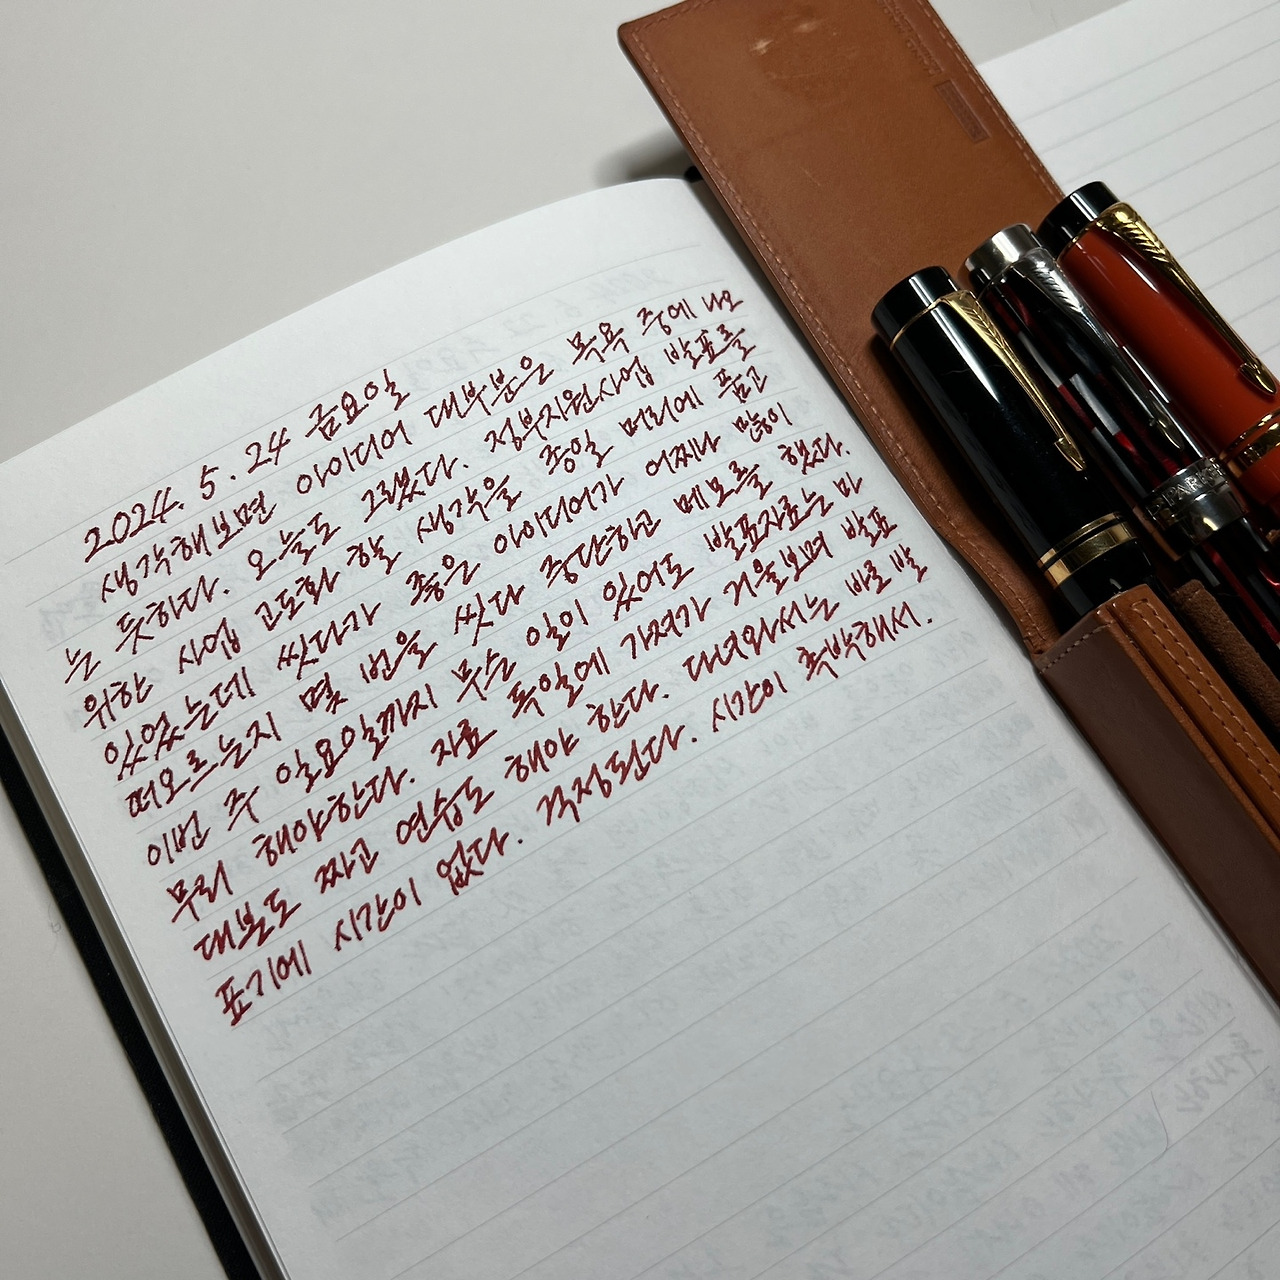 2024. 5. 24 금요일
생각해보면 아이디어 대부분은 목욕 중에 나오
는 듯하다. 오늘도 그랬다. 정부지원사업 발표를
위한 사업 고도화 할 생각을 종일 머리에 품고
있었는데 씻다가 좋은 아이디어가 어찌나 많이
떠오르는지 몇 번을 씻다 중단하고 메모를 했다.
이번 주 일요일까지 무슨 일이 있어도 발표자료는 마
무리 해야한다. 자료 독일에 가져가 거울보며 발표
대본도 짜고 연습도 해야 한다. 다녀와서는 바로 발
표기에 시간이 없다. 걱정된다. 시간이 촉박해서.
PARKER